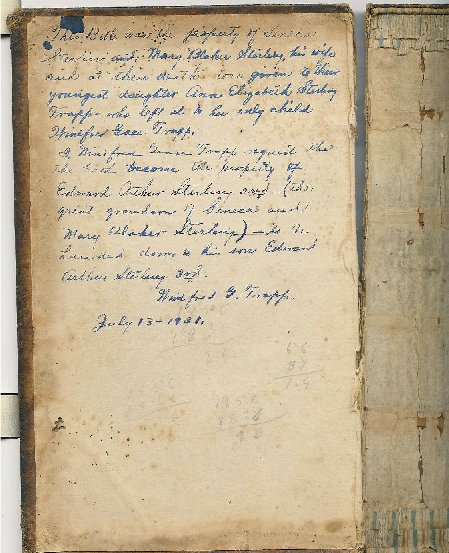 This Bible was the property of Seneca
Sterling and Mary Blaker Sterling, his wife
and at their deaths was given to their
youngest daughter Ann Elizabeth Sterling
Trapp - who left it to her only child
Winifred Grace Trapp.
I, Winifred Grace Trapp request that
the book become the property of
Edward Arthur Sterling
great grandson of Seneca and
Mary Blaker Sterling) - to be
handed down to his son Edward
Arthur Sterling 3rd.
Winifred G. Trapp.
July 13 - 19
56
1856
1856